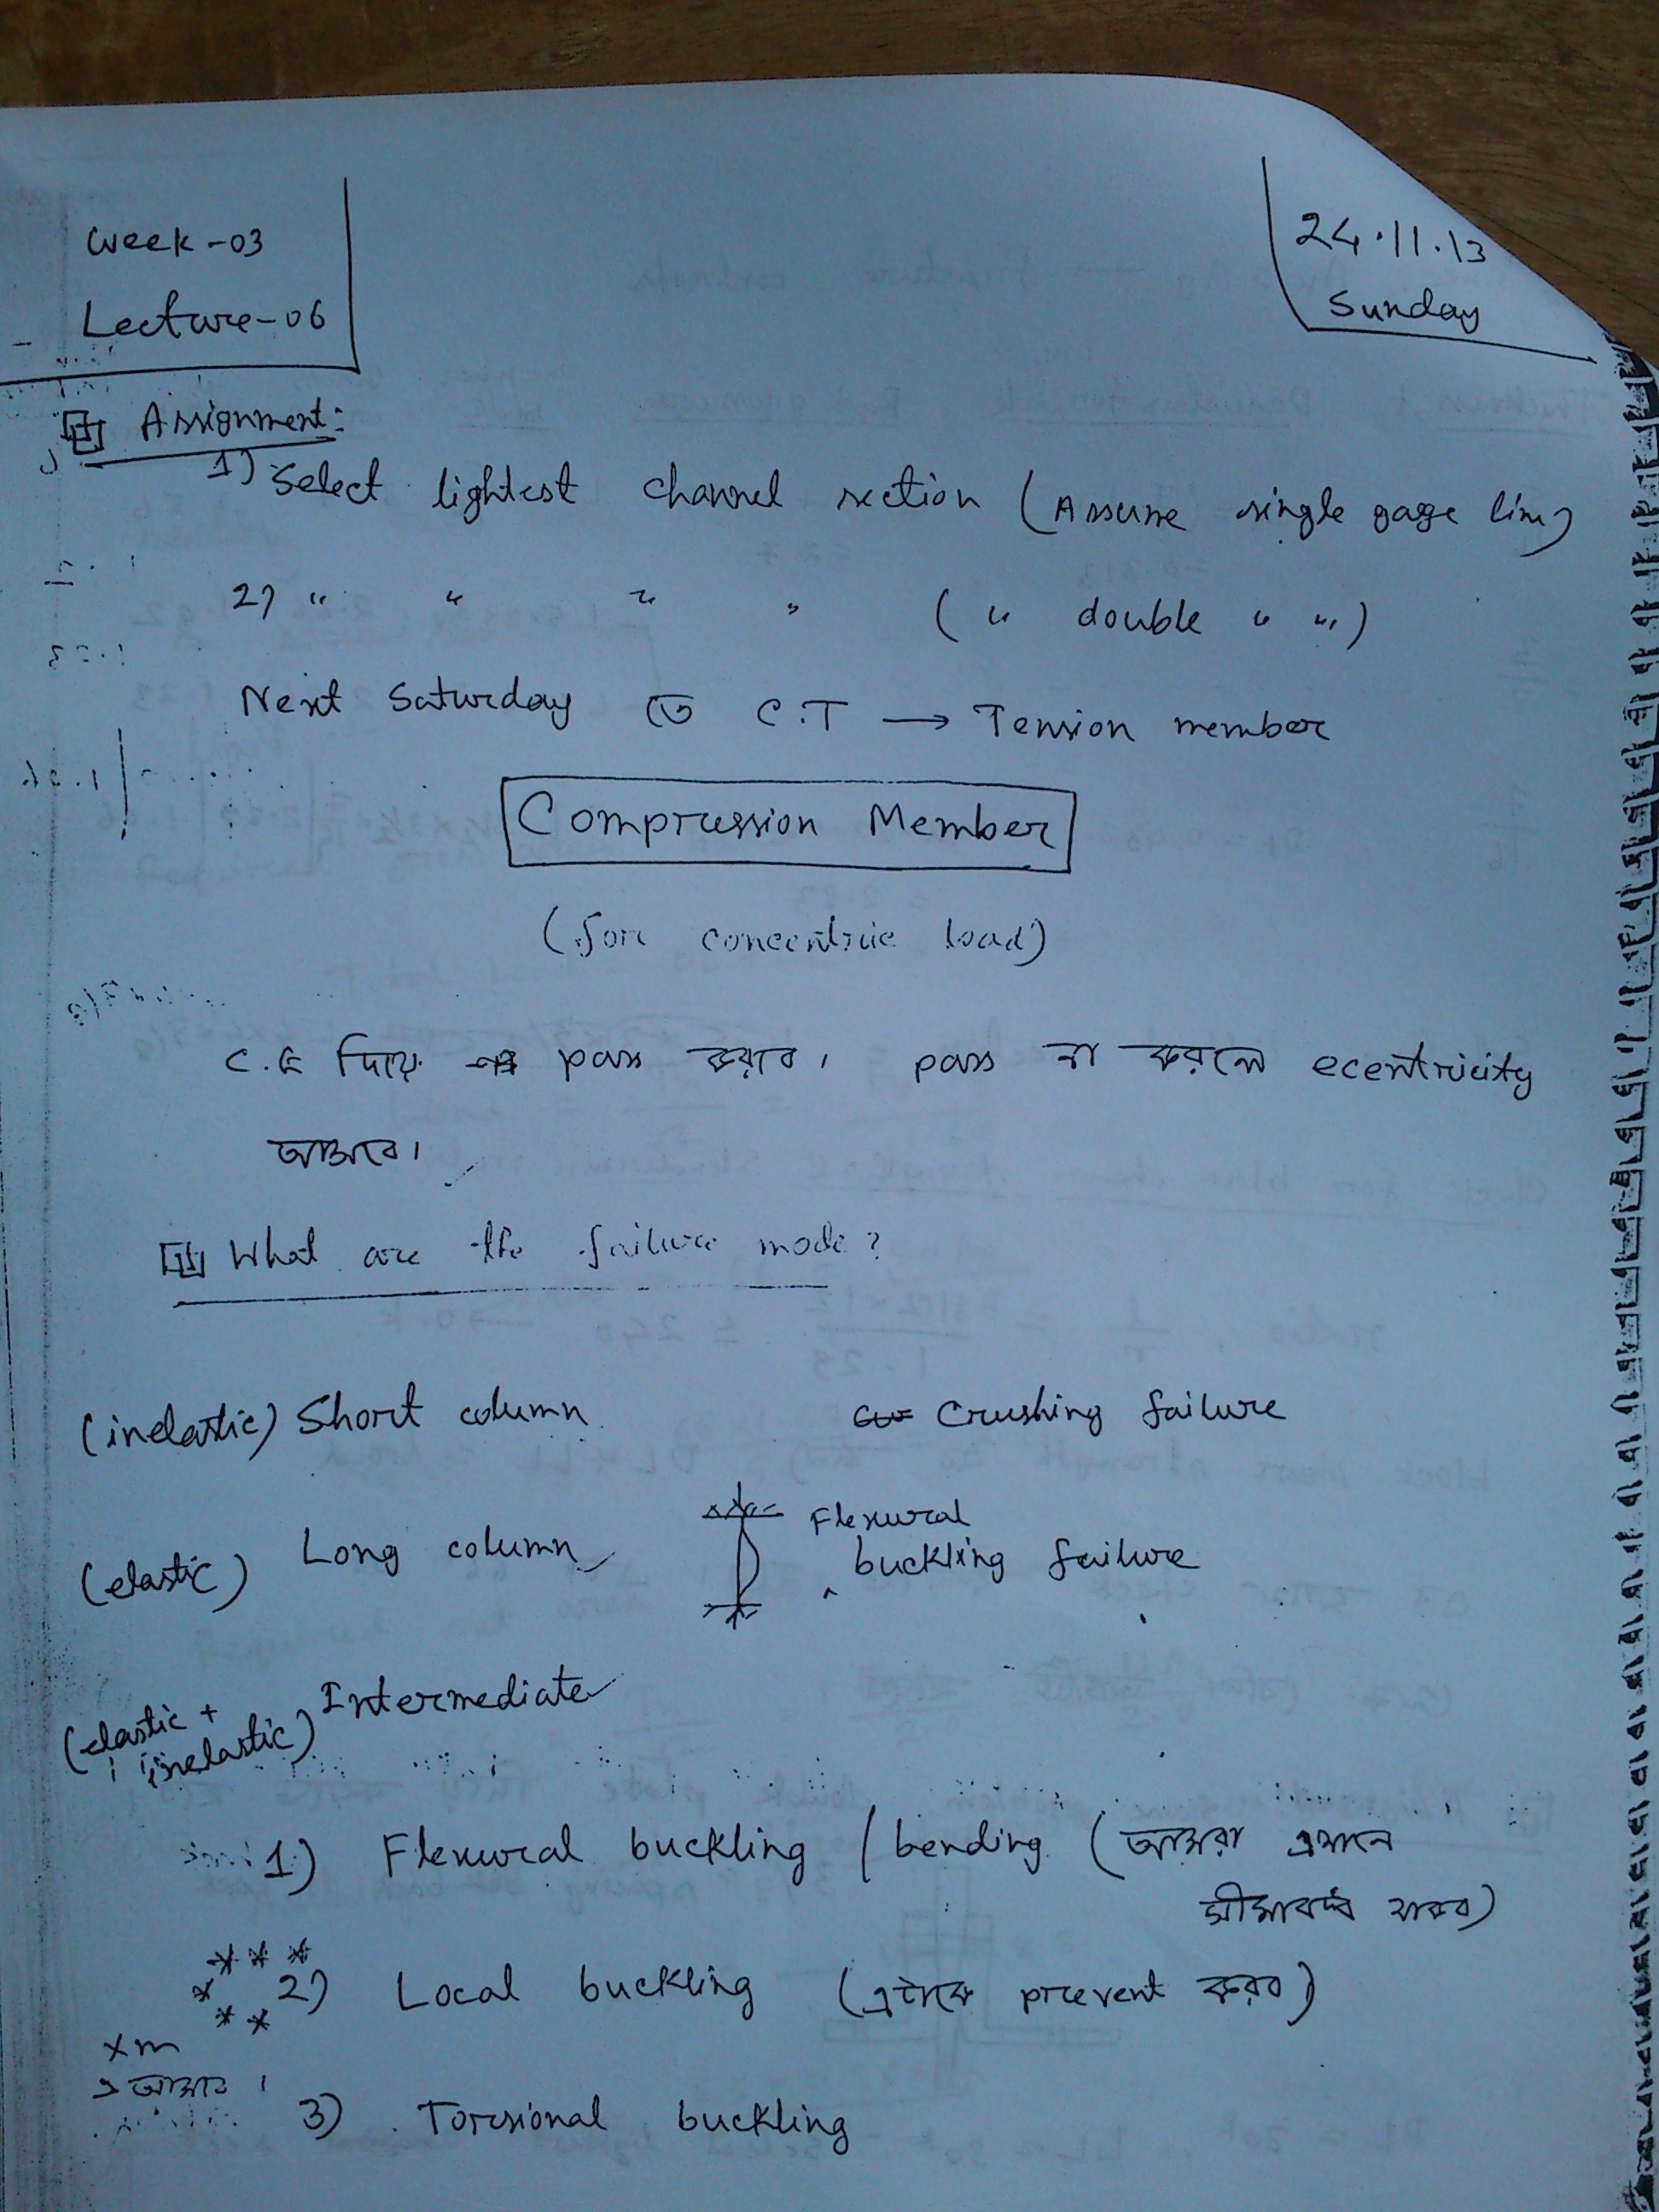 Week-03
Lecture-06
24.11.13
Sunday
Assignment:
1) Select lightest channel section (Assume single gage line)
2) " " " " ( " double " " )
Next Saturday তে C.T → Tension member
Compression Member
(for concentric load)
C.G দিয়ে pass করবে। pass না করলে ecentricity
আসবে।
What are the failure mode?
(inelastic) Short column Crushing failure
(elastic) Long column Flexural
buckling failure
(elastic + inelastic) Intermediate
1) Flexural buckling / bending (আমরা এখানে
সীমাবদ্ধ থাকব)
2) Local buckling (এটাকে prevent করব)
xm
আসবে।
3) Torsional buckling